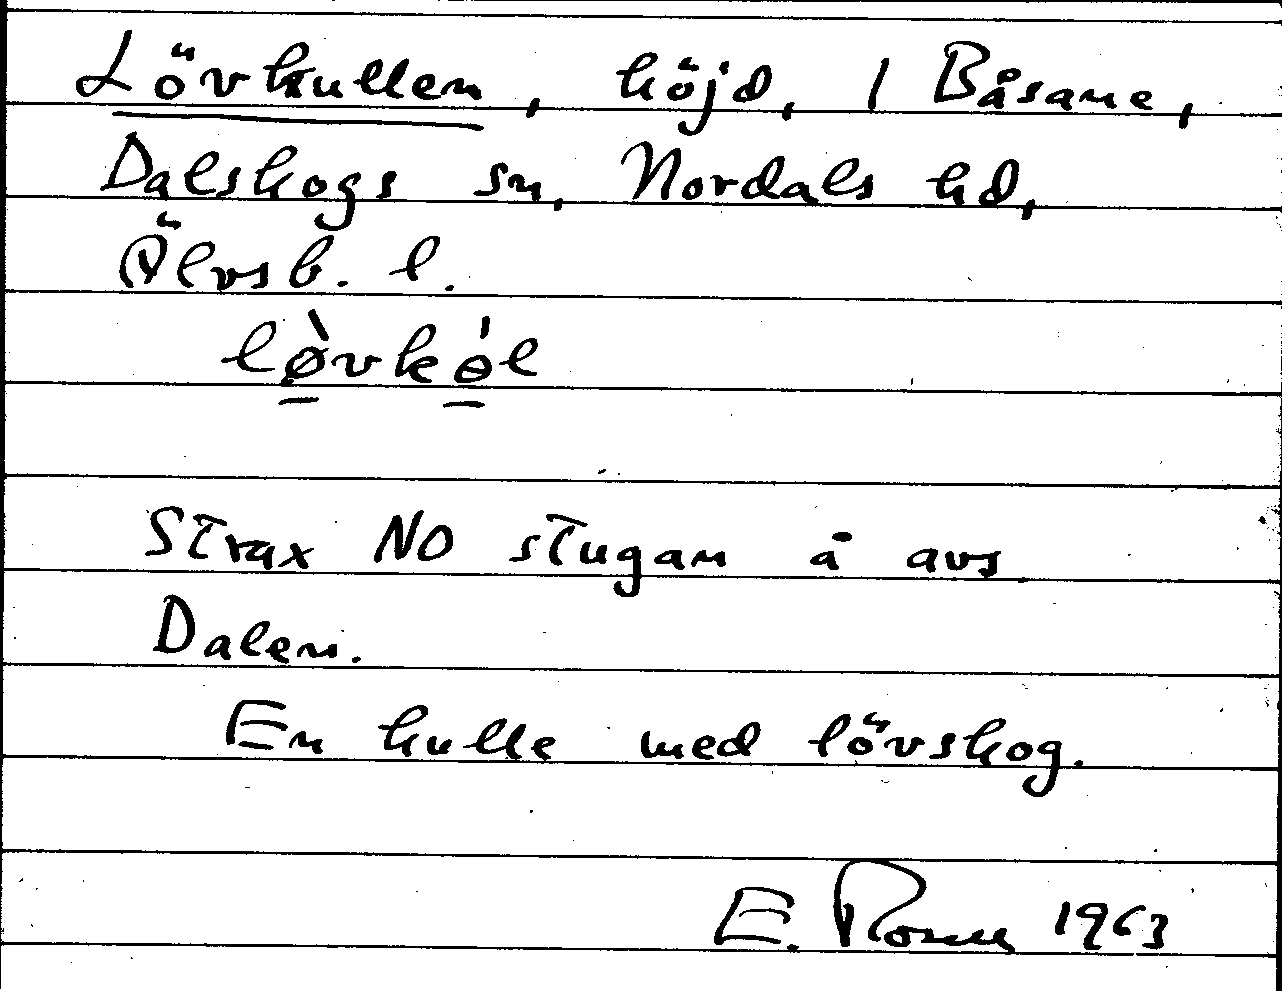 Lövkullen, höjd, 1 Båsane,
Dalskogs sn, Nordals hd,
Älvsb. l.
lø̀vkɵ́l
Strax NO stugan å avs
Dalen.
En kulle med lövskog.
E. 1963